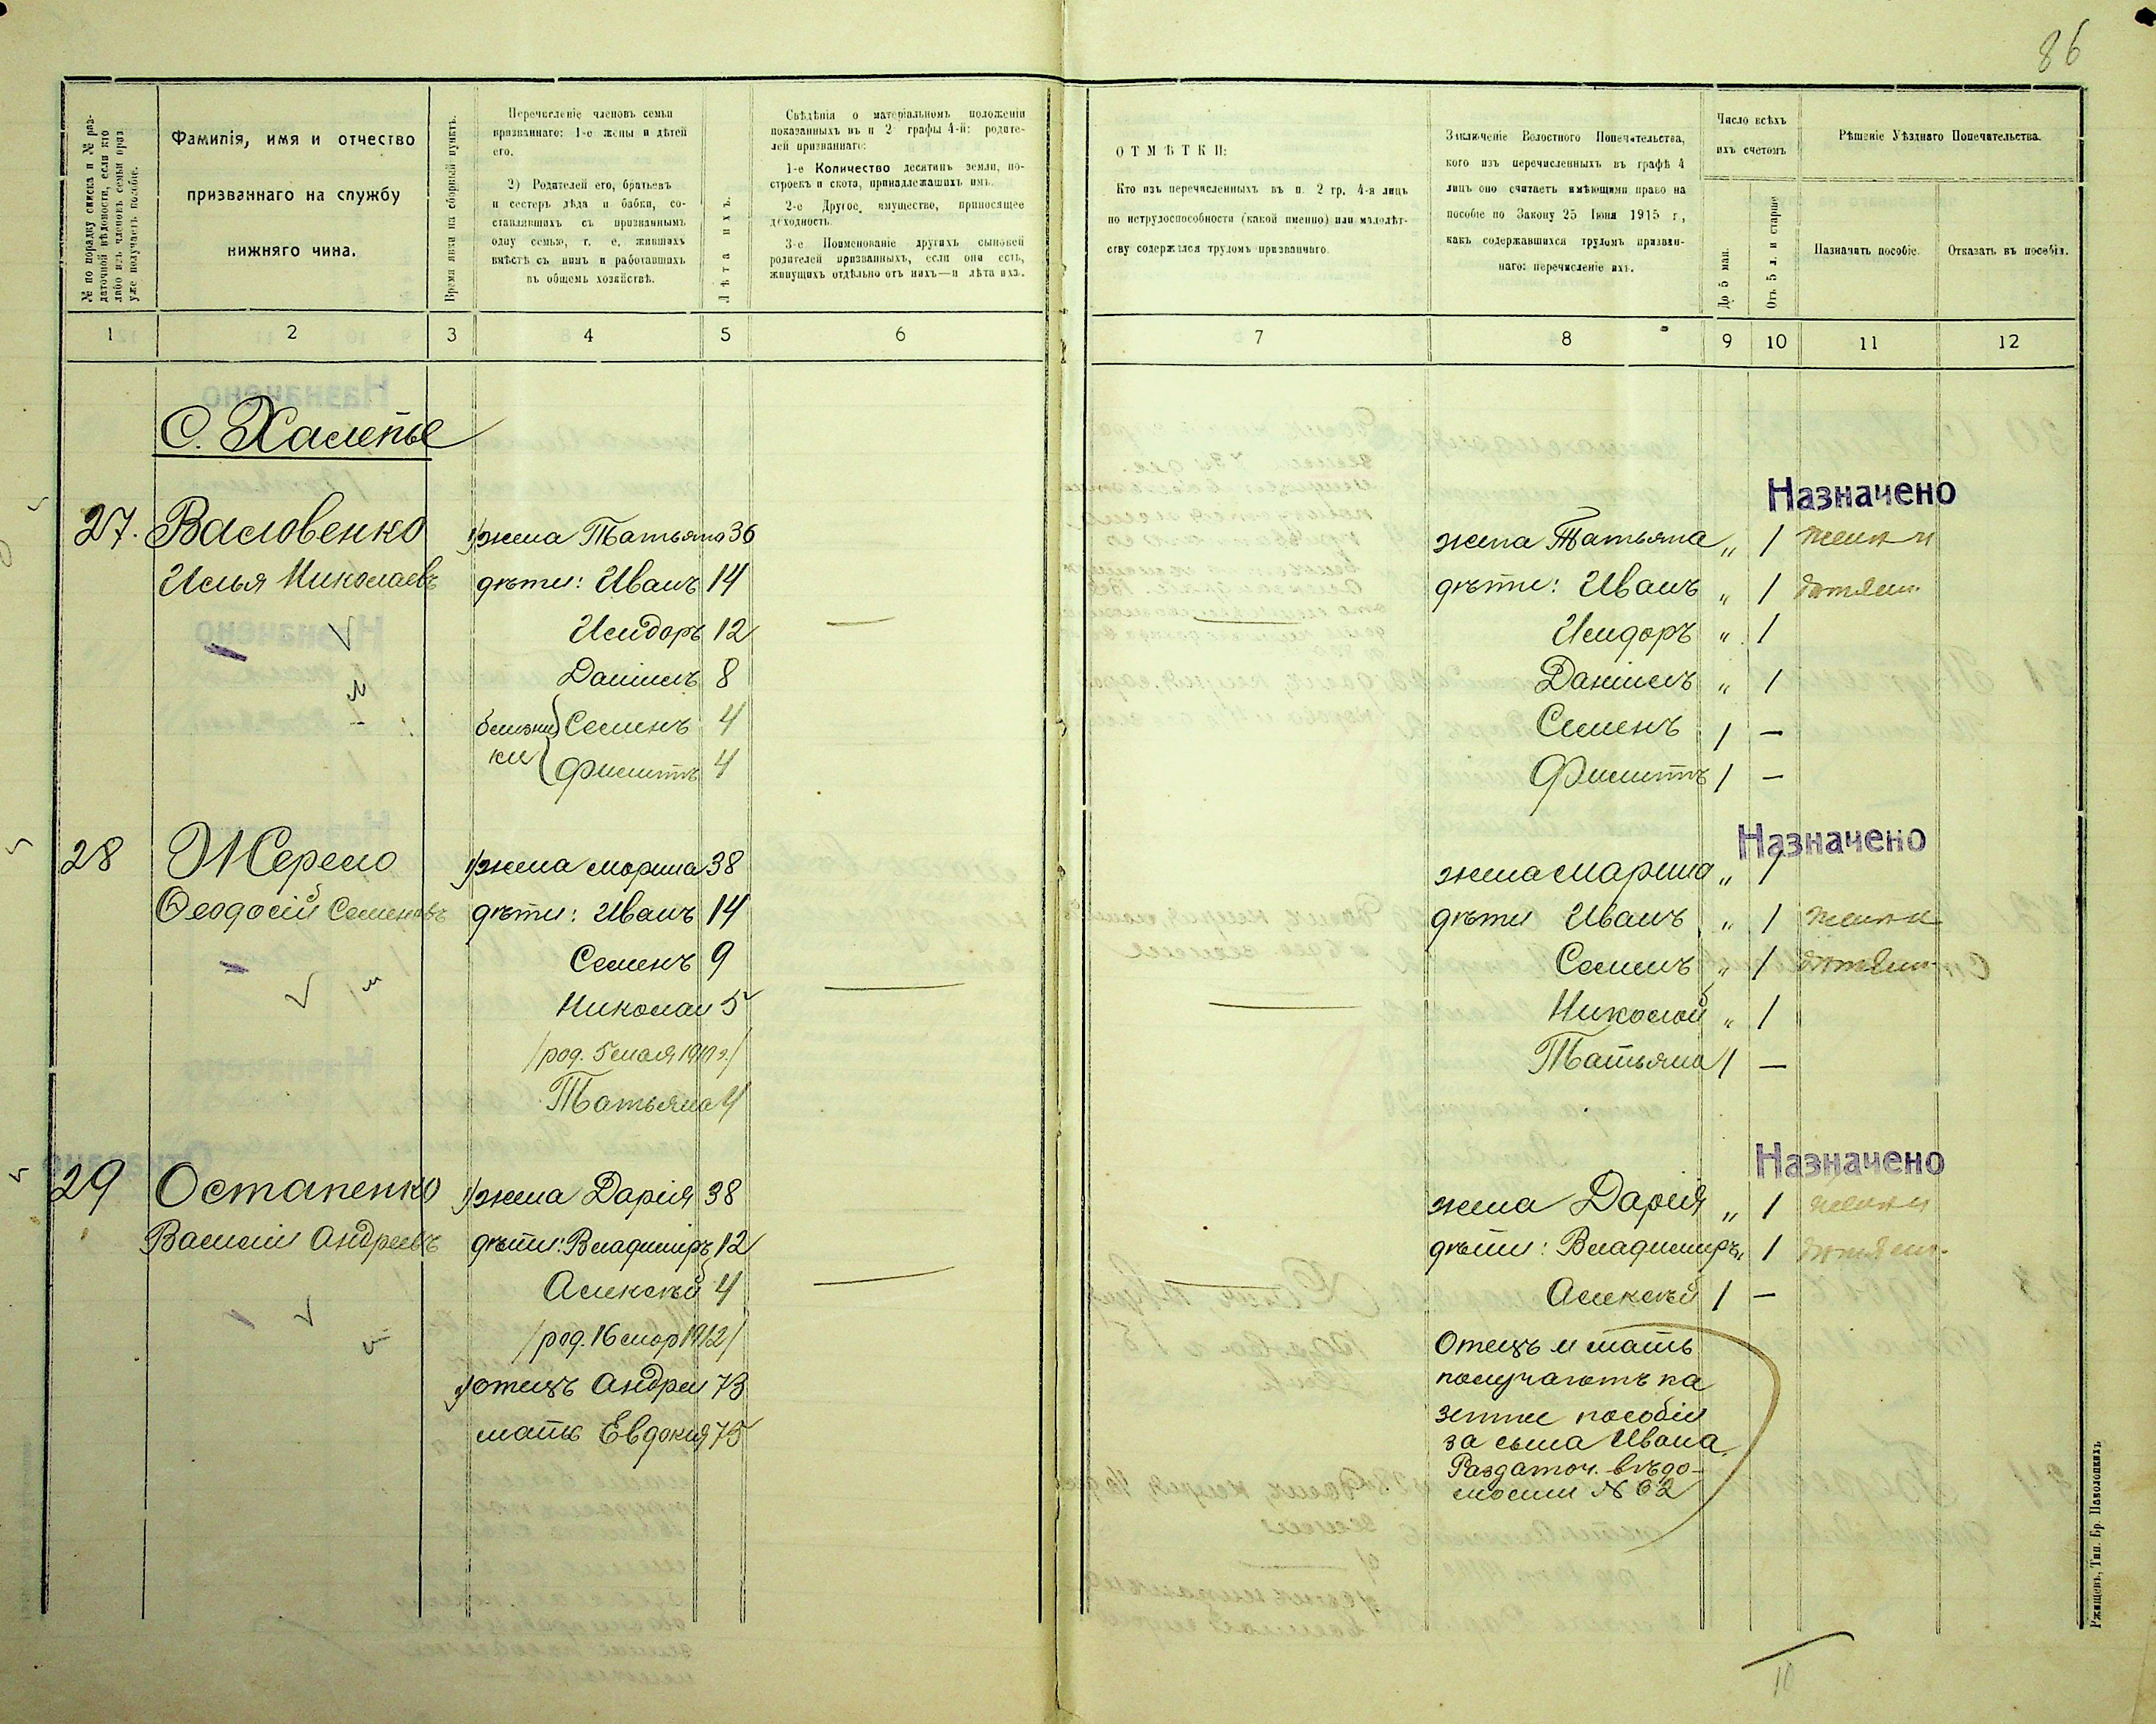 86
№ по порядку списка и № раздаточной вѣдомости, если кто либо изъ членовъ семьи приз. уже получаетъ пособіе.
Фамилія, имя и отчество
призваннаго на службу
нижняго чина.
Время явки на сборный пунктъ.
Перечисленіе членовъ семьи
призваннаго: 1-е жены и дѣтей
его.
2) Родителей его, братьевъ
и сестеръ дѣда и бабки, со-
ставлявшихъ съ призваннымъ
одну семью, т. е. жившихъ
вмѣстѣ съ нимъ и работавшихъ
въ общемъ хозяйствѣ.
Лѣта ихъ.
Свѣдѣнія о матеріальномъ положеніи
показанныхъ въ п 2 графы 4-й: родите-
лей призваннаго:
1-е Количество десятинъ земли, по-
строекъ и скота, принадлежащихъ имъ.
2-е Другое имущество, приносящее
доходность.
3-е Поименованіе другихъ сыновей
родителей призванныхъ, если они есть,
живущихъ отдѣльно отъ нихъ—и лѣта ихъ.
ОТМѢТКИ:
Кто изъ перечисленныхъ въ п. 2 гр. 4-я лицъ
по нетрудоспособности (какой именно) или малолѣт-
ству содержался трудомъ призваннаго.
Заключеніе Волостного Попечительства,
кого изъ перечисленныхъ въ графѣ 4
лицъ оно считаетъ имѣющими право на
пособіе по Закону 25 Іюня 1915 г,
какъ содержавшихся трудомъ призван-
наго: перечисленіе ихъ.
Число всѣхъ
ихъ счетомъ
До 5 мая.
Отъ 5 л. и старше
Рѣшеніе Уѣзднаго Попечительства.
Назначить пособіе.
Отказать въ пособіи.
1 2 3 4 5 6 7 8 9 10 11 12
С. Халепье
Назначено
27. Васловенко 1/ жена Татьяна 36 жена Татьяна „ 1 жена и
Илья Николаевъ дѣти: Иванъ 14 дѣти: Иванъ „ 1 дѣтям
Исидоръ 12 — — Исидоръ „ 1
Даніилъ 8 Даніилъ „ 1
близне Семенъ 4 Семенъ 1 —
ки Филиппъ 4 Филиппъ 1 —
Назначено
28 Жерело 1/ жена Марина 38 жена Марина „ 1
Ѳеодосій Семеновъ дѣти: Иванъ 14 дѣти Иванъ „ 1 жена и
Семенъ 9 Семенъ „ 1 дѣтям
Николай 5 — — Николай „ 1
/род. 5 мая 1910 г./ Татьяна 1 —
Татьяна 4
Назначено
29 Остапенко 1/ жена Дарія 38 жена Дарія „ 1 жена и
Василій Андреевъ дѣти: Владиміръ 12 дѣти: Владимиръ „ 1 дѣтям
Алексѣй 4 — — Алексѣй 1 —
/род. 16 мар 1912/ Отецъ и мать
2/ отецъ Андрей 73 получаютъ ка
зенне пособіи
мать Евдокия 75 за сына Ивана
Раздаточ. вѣдо-
мости № 62
10
Ржищевъ, Тип. Бр. Паволоцкихъ